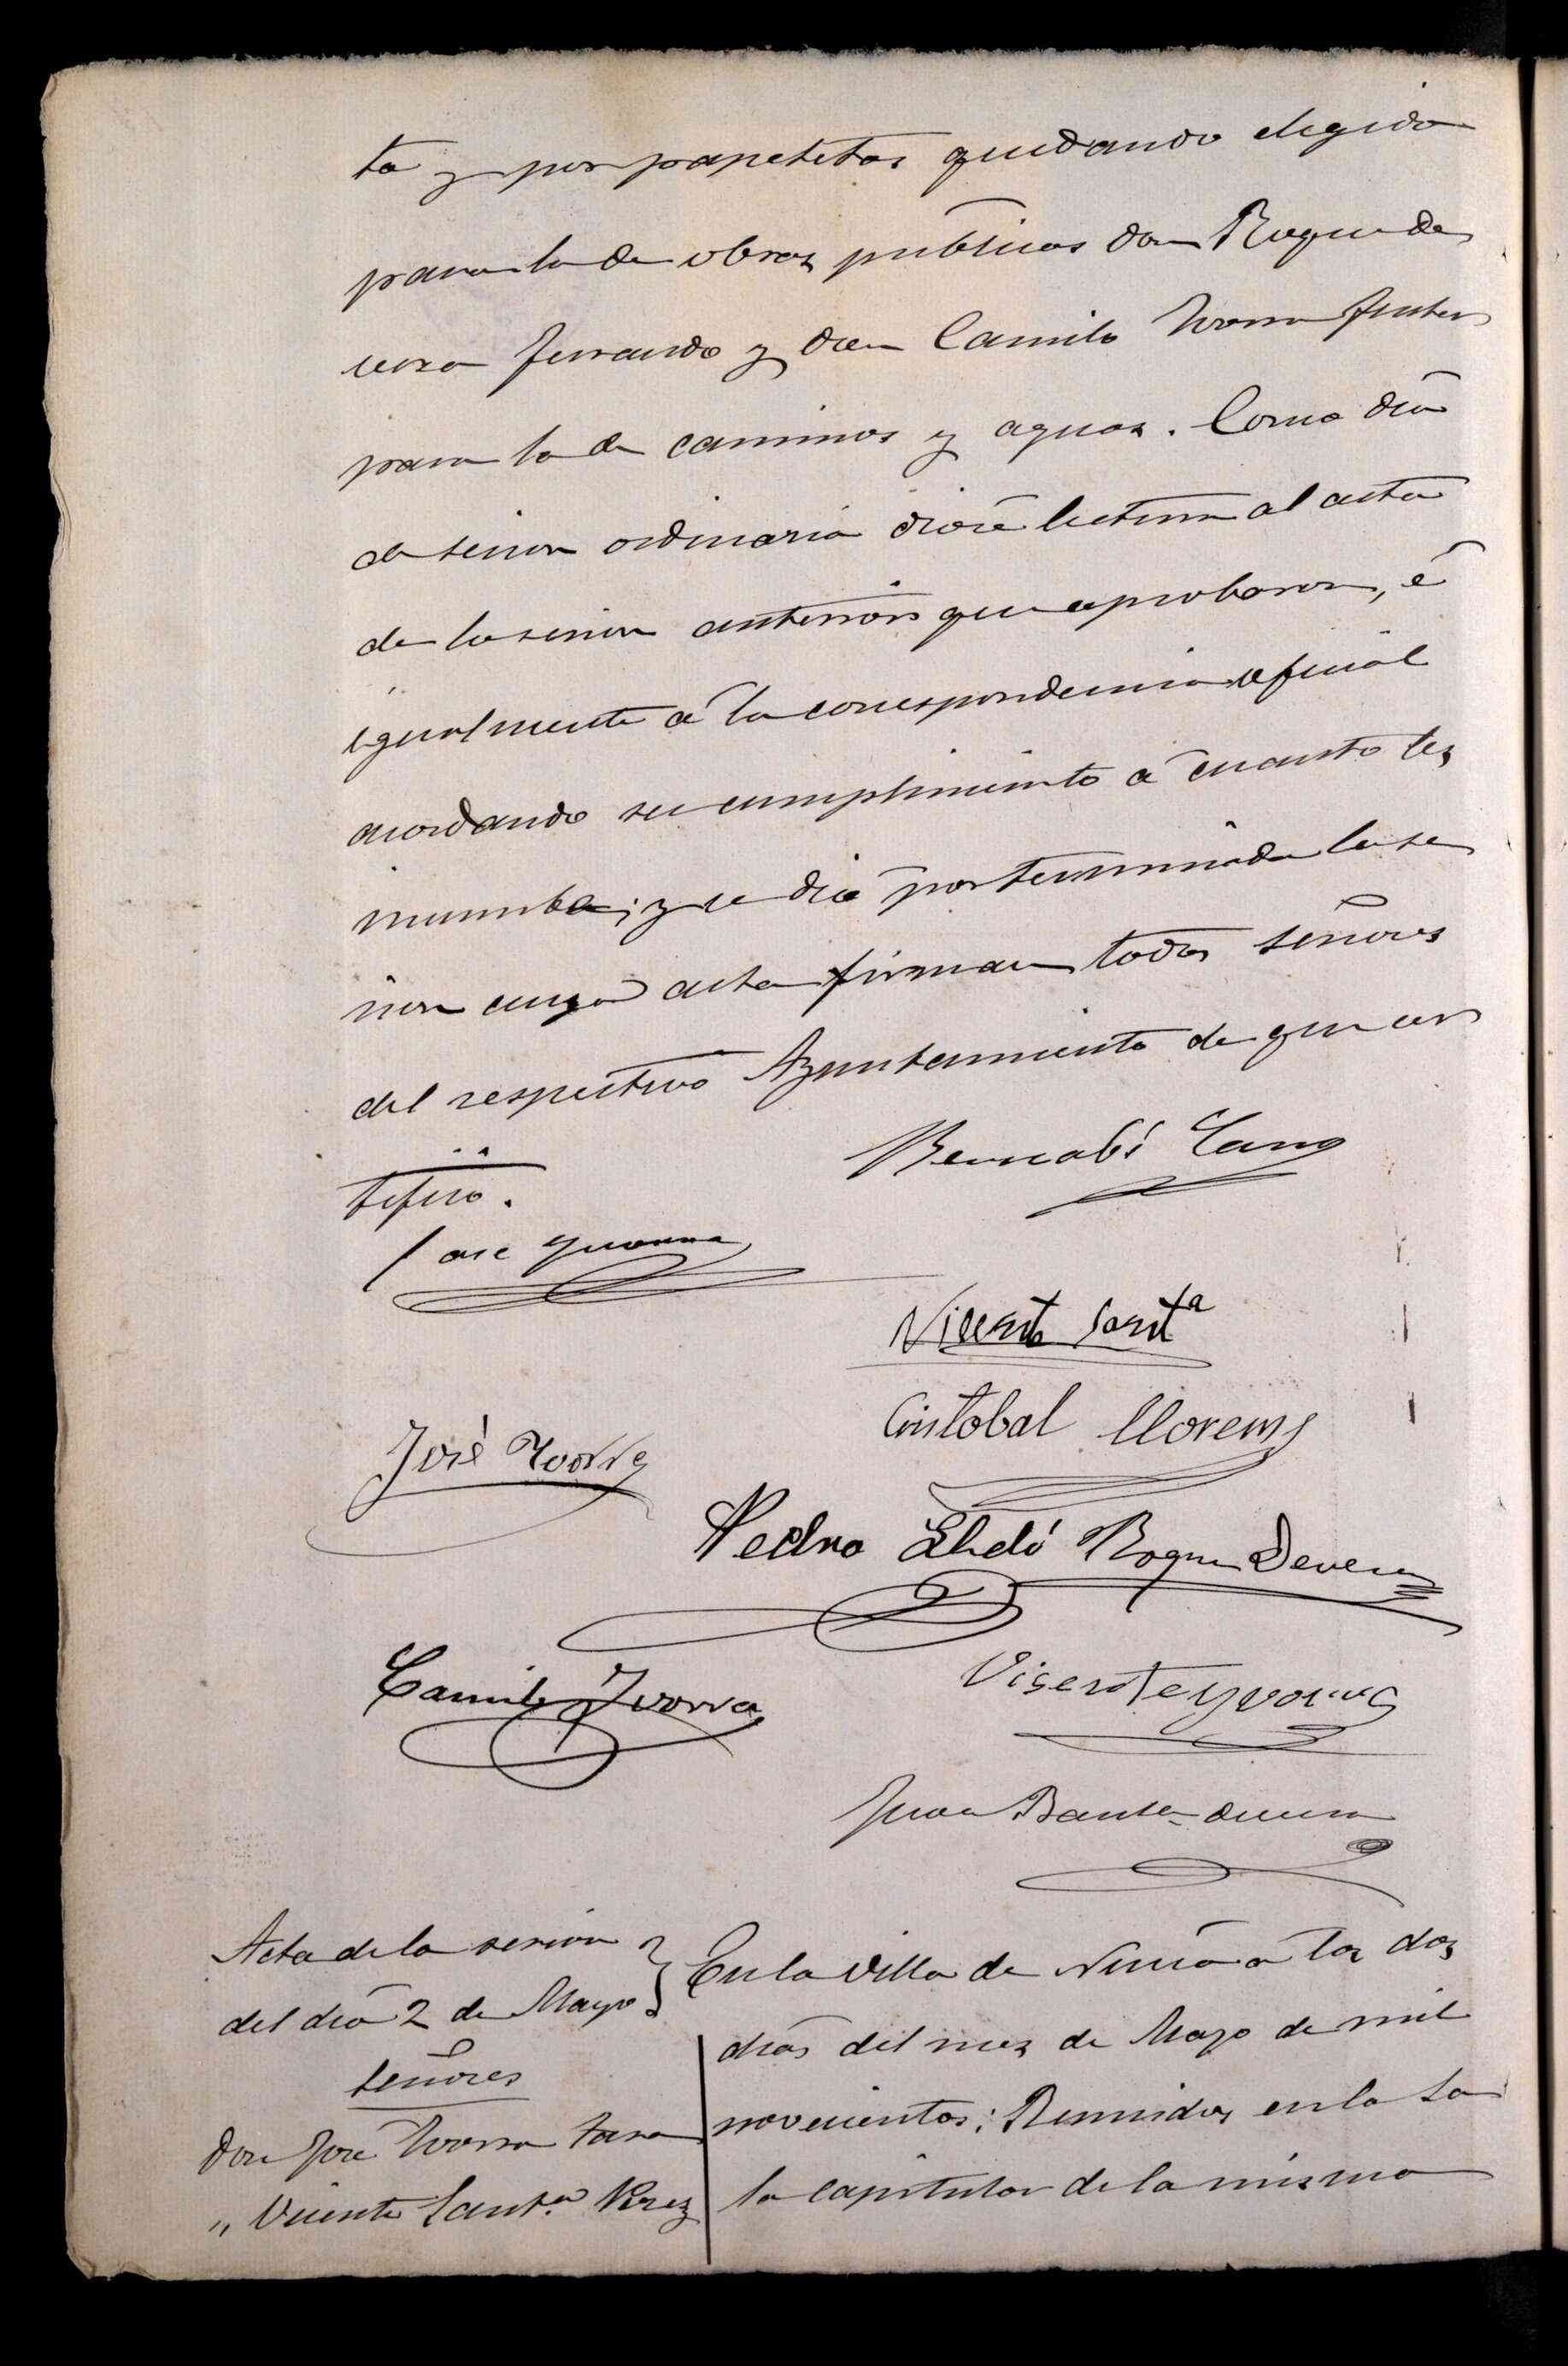 ta y por papeletas quedando elegido
para la de obras publicas don Roque de
vesa Ferrando y don Camilo Ivorra Fuster
para la de caminos y aguas. Como dia
de sesion ordinaria diose lectura al acta
de la sesion anterior que aprobaron, é
igualmente á la correspondencia oficial
acordando su cumplimiento á cuanto les
incumbe; y se dió por terminada la se
sion cuya acta firman todos señores
del respectivo Ayuntamiento de que cer
tifico.
Bernabé Cano
Jose Yvorra
Vicente Santª
Cristobal Llorens
José Yvorra
Pedro Lledó Roque Devesa
Camilo Ivorra
Visente Yvorra
Juan Bauta Devesa
Acta de la sesion
del dia 2 de Mayo
Señores
Don José Ivorra Cano
" Vicente Santª Perez
En la Villa de Nucia a los dos
dias del mes de Mayo de mil
novecientos: Reunidos en la Sa
la capitular de la misma